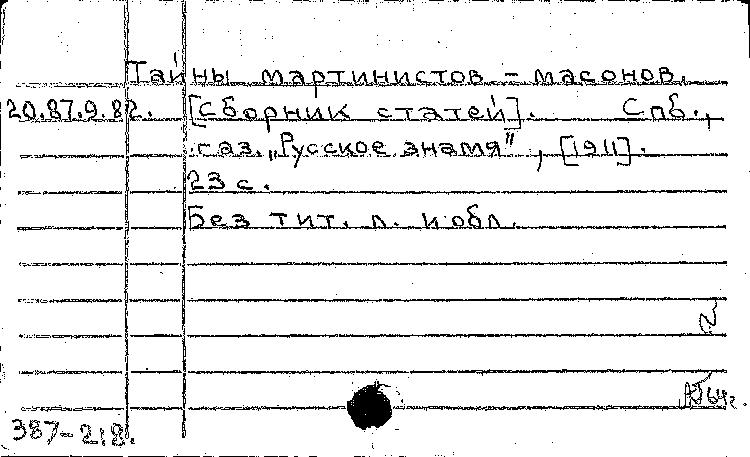 Тайны мартинистов - масонов.
20.87.9.82. [Сборник статей]. Спб.,
газ. „Русское знамя", [1911].
23 с.
Без тит. л. и обл.
387-218.